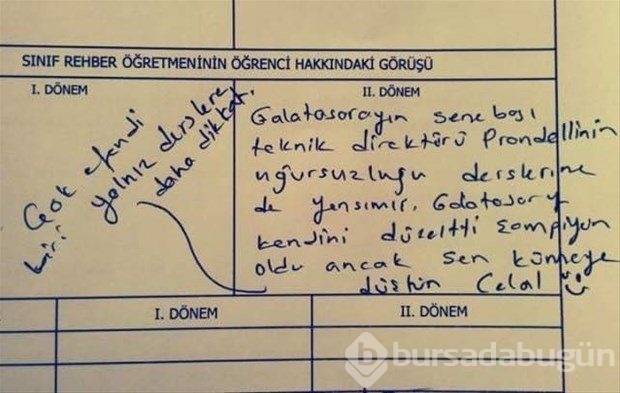 SINIF REHBER ÖĞRETMENİNİN ÖĞRENCİ HAKKINDAKİ GÖRÜŞÜ
I. DÖNEM
Çok efendi
biri
yalnız derslere
daha dikkat.
II. DÖNEM
Galatasarayın sene başı
teknik direktörü Prandellinin
uğursuzluğu derslerine
de yansımış. Galatasaray
kendini düzeltti şampiyon
oldu ancak sen kümeye
düştün Celal
I. DÖNEM
II. DÖNEM
bursadabugün